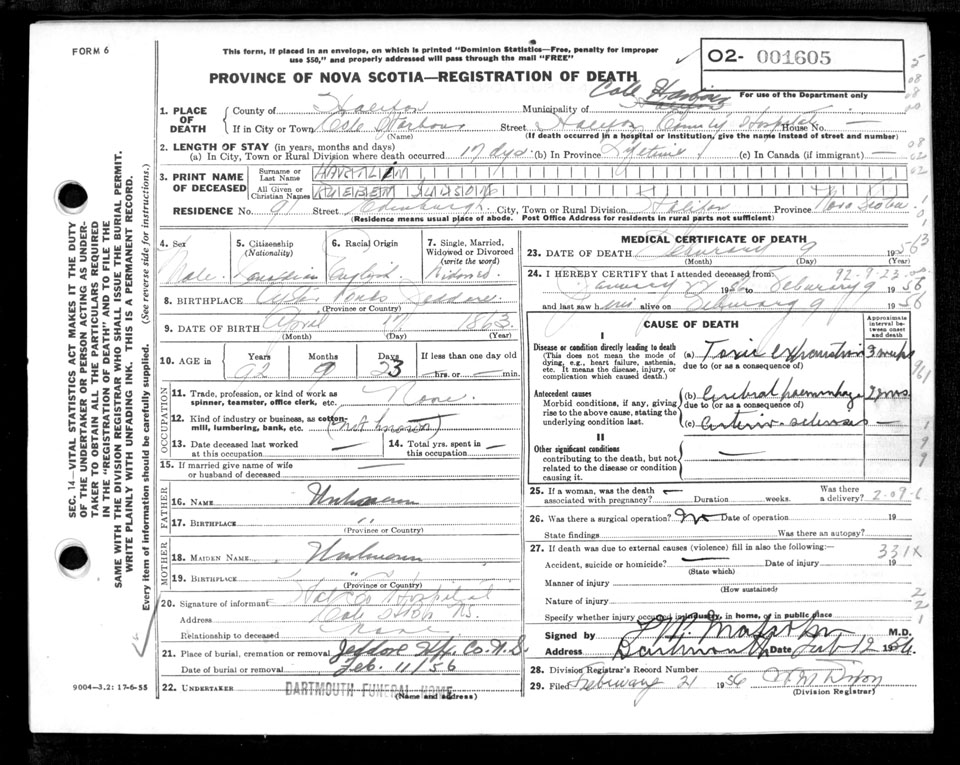 FORM 6
This form, if placed in an envelope, on which is printed "Dominion Statistics—Free, penalty for improper
use $50," and properly addressed will pass through the mail "FREE"
O2- 001605
For use of the Department only
PROVINCE OF NOVA SCOTIA—REGISTRATION OF DEATH
Cole Harbour
1. PLACE OF DEATH
County of Halifax Municipality of
If in City or Town Cole Harbour Street Halifax County Hospital House No. —
(Name) (If death occurred in a hospital or institution, give the name instead of street and number)
2. LENGTH OF STAY (in years, months and days)
(a) In City, Town or Rural Division where death occurred 17 dys. (b) In Province Lifetime (c) In Canada (if immigrant) —
3. PRINT NAME OF DECEASED
Surname or Last Name
All Given or Christian Names
RESIDENCE No. 91 Street Edinburgh City, Town or Rural Division Halifax Province Nova Scotia
(Residence means usual place of abode. Post Office Address for residents in rural parts not sufficient)
4. Sex
Male
5. Citizenship (Nationality)
Canadian
6. Racial Origin
English
7. Single, Married, Widowed or Divorced (write the word)
Widowed
8. BIRTHPLACE
(Province or Country)
9. DATE OF BIRTH April 17 1863
(Month) (Day) (Year)
10. AGE in
Years Months Days If less than one day old
92 9 23 — hrs. or — min.
OCCUPATION
11. Trade, profession, or kind of work as
spinner, teamster, office clerk, etc. None
12. Kind of industry or business, as cotton-
mill, lumbering, bank, etc. (not known)
13. Date deceased last worked
at this occupation —
14. Total yrs. spent in
this occupation —
15. If married give name of wife
or husband of deceased —
FATHER
16. NAME Unknown
17. BIRTHPLACE "
(Province or Country)
MOTHER
18. MAIDEN NAME Unknown
19. BIRTHPLACE "
(Province or Country)
20. Signature of informant Hal Co Hospital
Address Cole Hbr. N.S.
Relationship to deceased None
21. Place of burial, cremation or removal Jeddore Hfx. Co. N.S.
Date of burial or removal Feb. 11/56
22. UNDERTAKER DARTMOUTH FUNERAL HOME
(Name and address)
9004—3.2: 17-6-55
MEDICAL CERTIFICATE OF DEATH
23. DATE OF DEATH February 9 1956
(Month) (Day) (Year)
24. I HEREBY CERTIFY that I attended deceased from 92-9-23
January 56 to February 9 1956
and last saw him alive on February 9 1956
CAUSE OF DEATH
Approximate interval between onset and death
I
Disease or condition directly leading to death
(This does not mean the mode of dying, e.g., heart failure, asthenia, etc. It means the disease, injury, or complication which caused death.)
(a) Toxic exhaustion 3 weeks
due to (or as a consequence of)
Antecedent causes
Morbid conditions, if any, giving rise to the above cause, stating the underlying condition last.
(b) Cerebral haemorrhage
due to (or as a consequence of)
(c) Arterio-sclerosis —
II
Other significant conditions
contributing to the death, but not related to the disease or condition causing it.
25. If a woman, was the death
associated with pregnancy? — Duration weeks. Was there a delivery?
2-09-6
26. Was there a surgical operation? No Date of operation 19
State findings Was there an autopsy?
27. If death was due to external causes (violence) fill in also the following:—
331X
Accident, suicide or homicide? — Date of injury 19
(State which)
Manner of injury
(How sustained)
Nature of injury
Specify whether injury occurred in industry, in home, or in public place
Signed by M.D.
Address Dartmouth Date Feb 12 1956
28. Division Registrar's Record Number
29. Filed February 21 1956
(Division Registrar)
SEC. 14—VITAL STATISTICS ACT MAKES IT THE DUTY
OF THE UNDERTAKER OR PERSON ACTING AS UNDER-
TAKER TO OBTAIN ALL THE PARTICULARS REQUIRED
IN THE "REGISTRATION OF DEATH" AND TO FILE THE
SAME WITH THE DIVISION REGISTRAR WHO SHALL ISSUE THE BURIAL PERMIT.
WRITE PLAINLY WITH UNFADING INK. THIS IS A PERMANENT RECORD.
Every item of information should be carefully supplied. (See reverse side for instructions.)